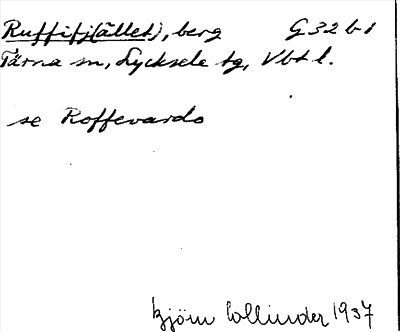 Ruffifj(ället), berg G 32 b 1
Tärna sn, Lycksele tg, Vbt l.
se Roffevardo
Björn Collinder 1937